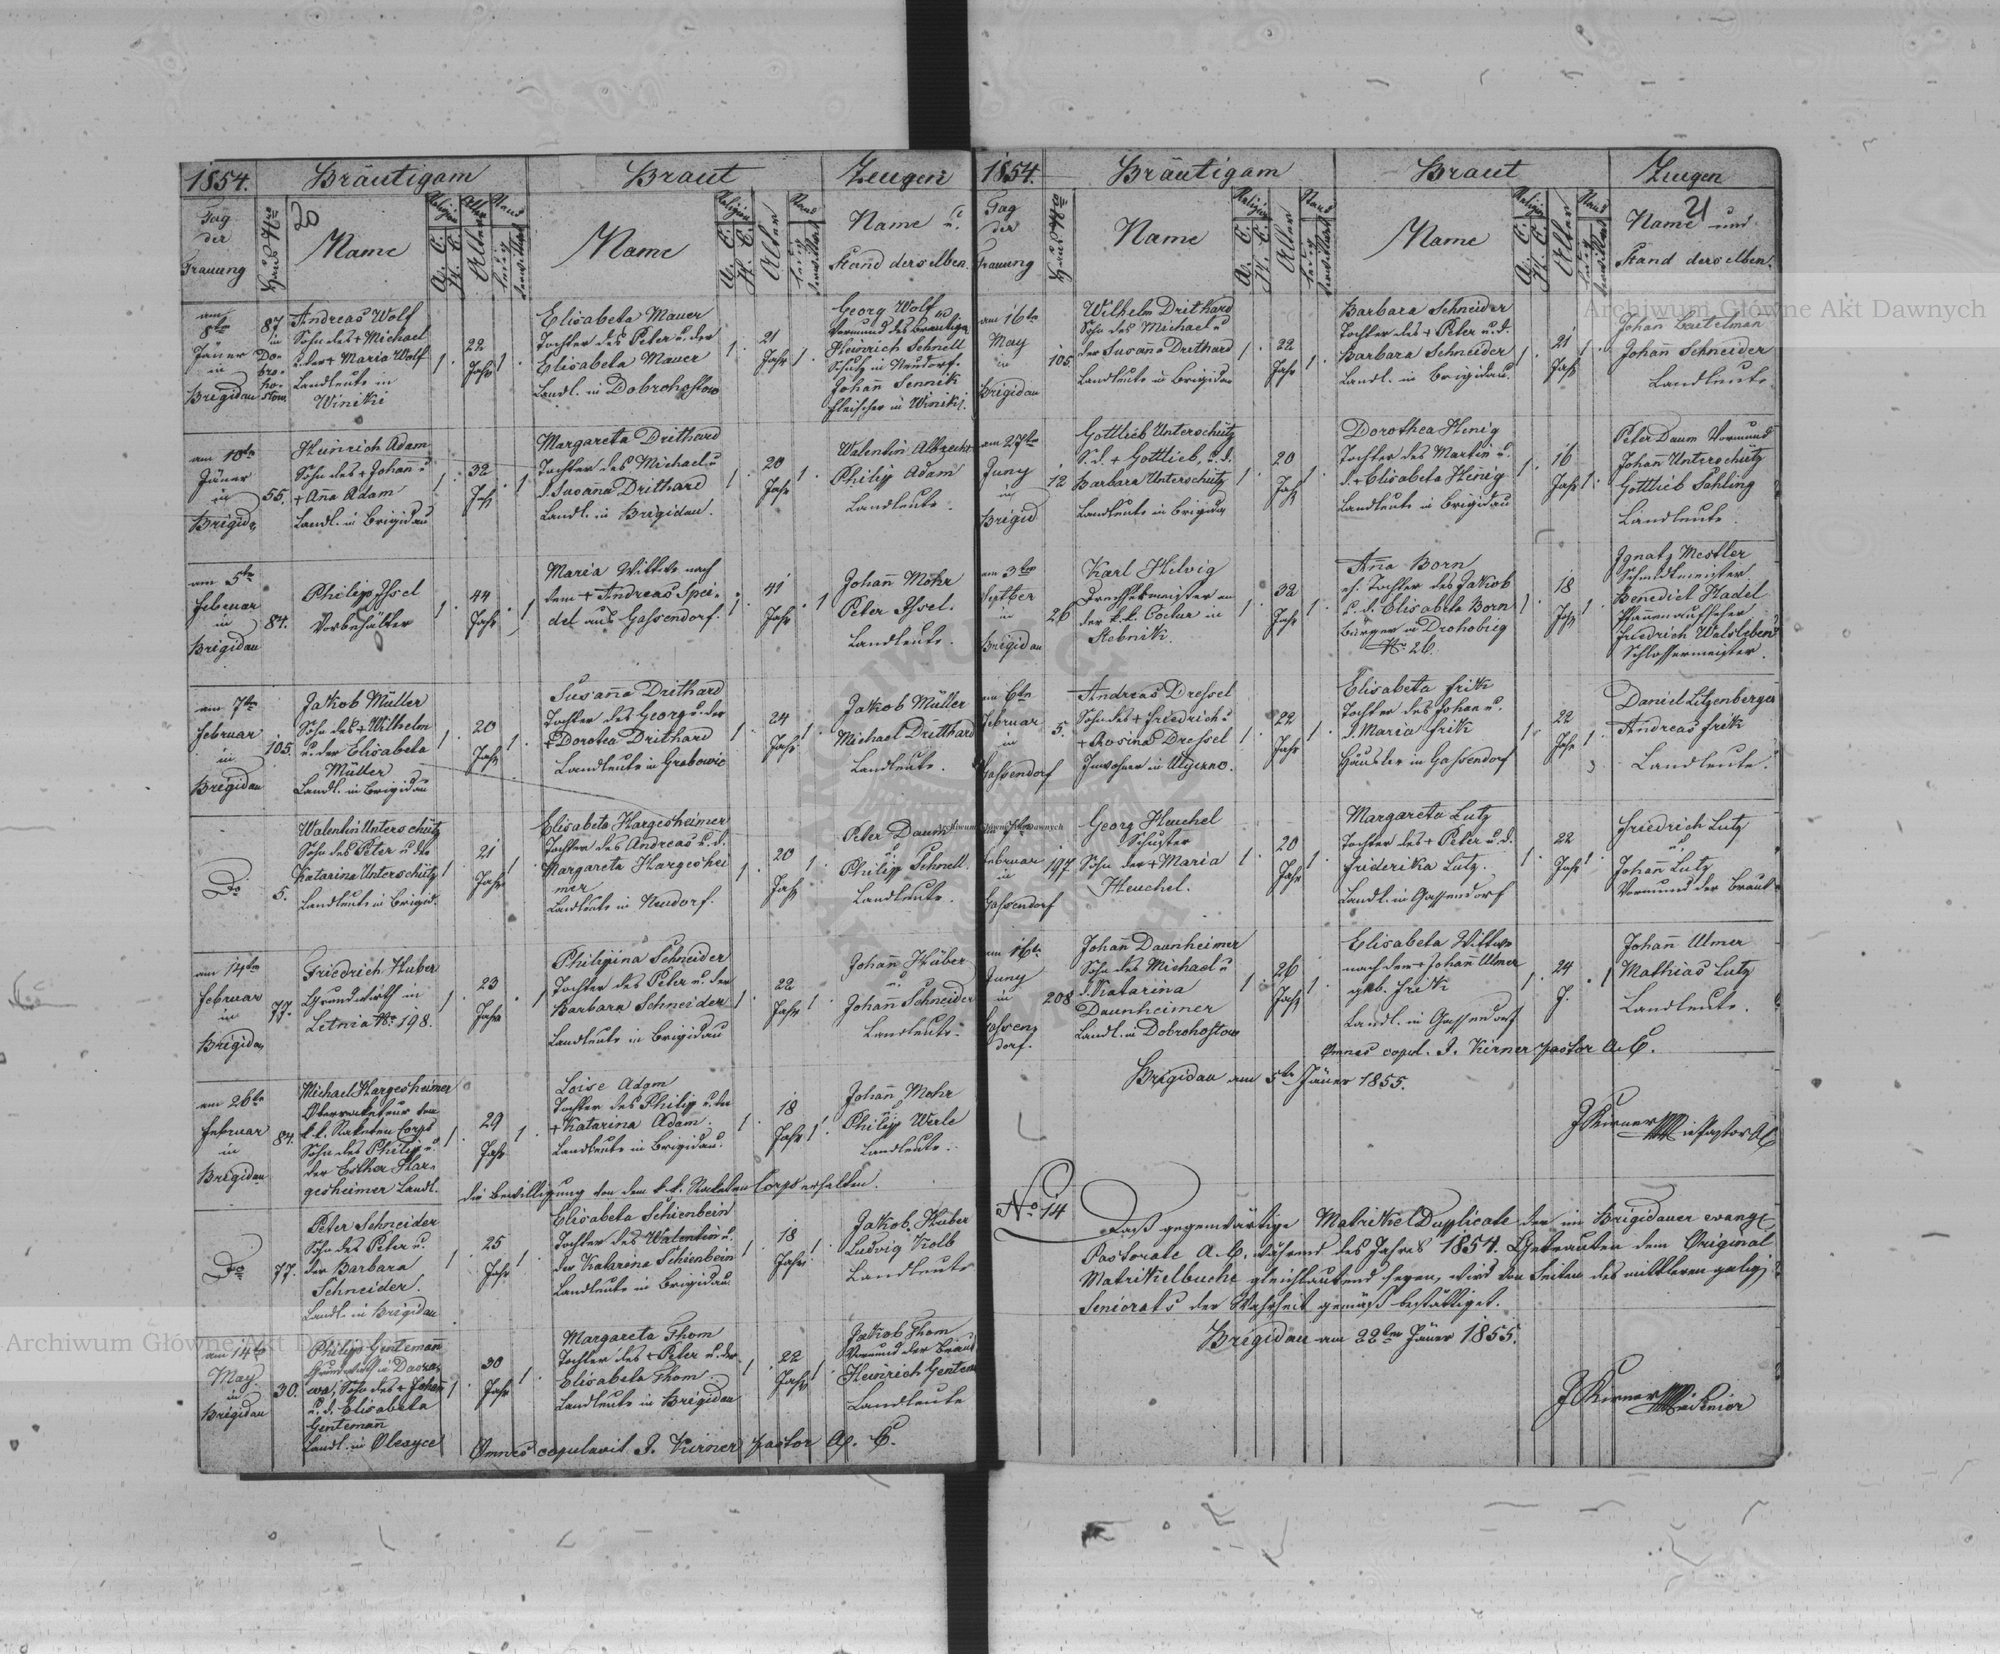 1854.
Bräutigam
Braut
Zeugen
Tag
der
Trauung
Haus Nro
20
Name
Religion
A. C.
H. C.
Alter
Stand
Name
Religion
A. C.
H. C.
Alter
Stand
Name u.
Stand derselben.
am
8ten
Jäner
in
Brigidau
87
in
Do-
bro-
ho-
stow.
Andreas Wolf
Sohn des + Michael
u. der + Maria Wolf
Landleute in
Winiki
1.
22
Jahr
1.
Elisabeta Mauer
Tochter des Peter u. der
Elisabeta Mauer
Landl. in Dobrohostow
1.
21
Jahr
1.
Georg Wolf
Vormund des Bräutiga
Heinrich Schnell
Schulz in Neudorf.
Johann Sennik
Fleischer in Winiki.
am 10ten
Jäner
in
Brigid.
55.
Heinrich Adam
Sohn des + Johann u
+ Anna Adam
Landl. in Brigidau
1.
32
Jahr
1.
Margareta Drithard
Tochter des Michael u
d. Susanna Drithard
Landl. in Brigidau.
1.
20
Jahr
1.
Valentin Albrecht
Philip Adam
Landleute.
am 5ten
Februar
in
Brigidau
84.
Philip Issel
Vorbehälter
1.
44
Jahr
1
Maria Wittwe nach
dem + Andreas Spei-
del aus Gassendorf.
1.
41
Jahr
1
Johann Mohr
Peter Issel.
Landleute.
am 7ten
Februar
in
Brigidau
105.
Jakob Müller
Sohn des + Wilhelm
u. der Elisabeta
Müller
Landl. in Brigidau
1.
20
Jahr
1.
Susanna Drithard
Tochter des Georg u. der
+ Dorotea Drithard
Landleute in Grabowic
1.
24
Jahr
1.
Jakob Müller
Michael Dritthard
Landleute.
Do
5.
Valentin Unterschütz
Sohn des Peter u der
Katarina Unterschütz
Landleute in Brigid.
1.
21
Jahr
1.
Elisabeta Hargesheimer
Tochter des Andreas u. d.
Margareta Hargeshei
mer
Landleute in Neudorf.
1.
20
Jahr
1.
Peter Daum
u
Philip Schnell.
Landleute.
am 14ten
Februar
in
Brigidau
77.
Friedrich Huber
Grundwirth in
Letnia No. 198.
1.
23
Jahr
1
Philipina Schneider
Tochter des Peter u. der
Barbara Schneider
Landleute in Brigidau
1.
22
Jahr
1.
Johann Huber
u.
Johann Schneider
Landleute.
am 26ten
Februar
in
Brigidau
84.
Michael Hargesheimer
Oberraketeur dem
k. k. Raketen Corps
Sohn des Philip u.
der Esther Har-
gesheimer Landl.
1.
29
Jahr
1.
Loise Adam
Tochter des Philip u. der
+ Katarina Adam.
Landleute in Brigidau.
1.
18
Jahr
1.
Johann Mohr
u
Philip Werle
Landleute.
die Bewilligung von dem k. k. Raketen Corps erhalten.
Do
77.
Peter Schneider
Sohn des Peter u.
der Barbara
Schneider.
Landl. in Brigidau
1.
25
Jahr
1.
Elisabeta Schienbein
Tochter des Valentin u.
der Katarina Schienbein
Landleute in Brigidau
1.
18
Jahr
1.
Jakob Huber
Ludvig Kolb
Landleute
am 14ten
May
in
Brigidau
30.
Philip Gentemann
Sohn des + Johann
u. d. Elisabeta
Gentemann
Landl. in Olexyce
1.
30
Jahr
1.
Margareta Thom
Tochter des + Peter u. der
Elisabeta Thom.
Landleute in Brigidau
1.
22
Jahr
1.
Jakob Thom
Vormund der Braut
Heinrich Gentem
Landleute
Omnes copulavit J. Kirner pastor A. C.
1854.
Bräutigam
Braut
Zeugen
Tag
der
Trauung
Haus Nro
Name
Religion
A. C.
H. C.
Alter
Stand
Name
Religion
A. C.
H. C.
Alter
Stand
21
Name und
Stand derselben.
am 16ten
May
in
Brigidau
105.
Wilhelm Drithard
Sohn des Michael u
der Susanna Drithard
Landleute in Brigidau
1.
22
Jahr
1.
Barbara Schneider
Tochter des + Peter u. d.
Barbara Schneider
Landl. in Brigidau.
1.
21
Jahr
1.
Johann Schneider
Landleute.
am 27ten
Juny
in
Brigid
12
Gottlieb Unterschütz
S. d. + Gottlieb, u. d.
Barbara Unterschütz
Landleute in Brigidau
1.
20
Jahr
1.
Dorothea Henig
Tochter des Martin u.
d. + Elisabeta Henig
Landleute in Brigidau
1.
16
Jahr
1.
Peter Daum Vormund
Johann Unterschütz
Gottlieb Pahling
Landleute.
am 3ten
Septber
in
Brigidau
26
Karl Helvig
Drechslermeister an
der k. k. Coctur in
Stebnik.
1.
32
Jahr
1.
Anna Born
eh. Tochter des Jakob
u. d. Elisabeta Born
Bürger in Drohobieg
No. 26.
1.
18
Jahr
1.
Ignatz Mestler
Schmidtmeister
Benedict Hadel
Pfannenaufseher
Friedrich Walsleben
Schlossermeister.
am 6ten
Februar
in
Gassendorf
5.
Andreas Dressel
Sohn des + Friedrich u
+ Rosina Dressel
Inwohner in Ugerno.
1.
22
Jahr
1.
Elisabeta Frik
Tochter des Johan u.
d. Maria Frik
Häusler in Gassendorf
1.
22
Jahr
1.
Daniel Litzenberger
Andreas Frik
Landleute.
Februar
in
Gassendorf
197
Georg Heuchel
Schuster
Sohn der + Maria
Heuchel.
1.
20
Jahr
1.
Margareta Lutz
Tochter des + Peter u. d.
Friderika Lutz.
Landl. in Gassendorf
1.
22
Jahr
1.
Friedrich Lutz
u
Johann Lutz
Vormund der Braut
am 16ten
Juny
in
Gassen-
dorf.
208
Johann Daunheimer
Sohn des Michael u
d. Katarina
Daunheimer
Landl. in Dobrohostow
1.
26
Jahr
1.
Elisabeta Wittwe
nach dem + Johann Ulmer
geb. Frik
Landl. in Gassendorf
1.
24
J.
1
Johann Ulmer
Mathias Lutz
Landleute.
Omnes copul. J. Kirner pastor A. C.
Brigidau am 5ten Jäner 1855.
J Kirner Pastor AC
No. 14
Daß gegenwärtige Matrikel Duplicate der im Brigidauer evangl.
Pastorate A. C. während des Jahres 1854. Getrauten dem Original
Matrikelbuche gleichlautend seyen, wird von Seiten des mittleren galiz.
Seniorats der Wahrheit gemäß bestättiget.
Brigidau am 22ten Jäner 1855.
J Kirner Senior
Archiwum Główne Akt Dawnych
Archiwum Główne Akt Dawnych
Archiwum Główne Akt Dawnych